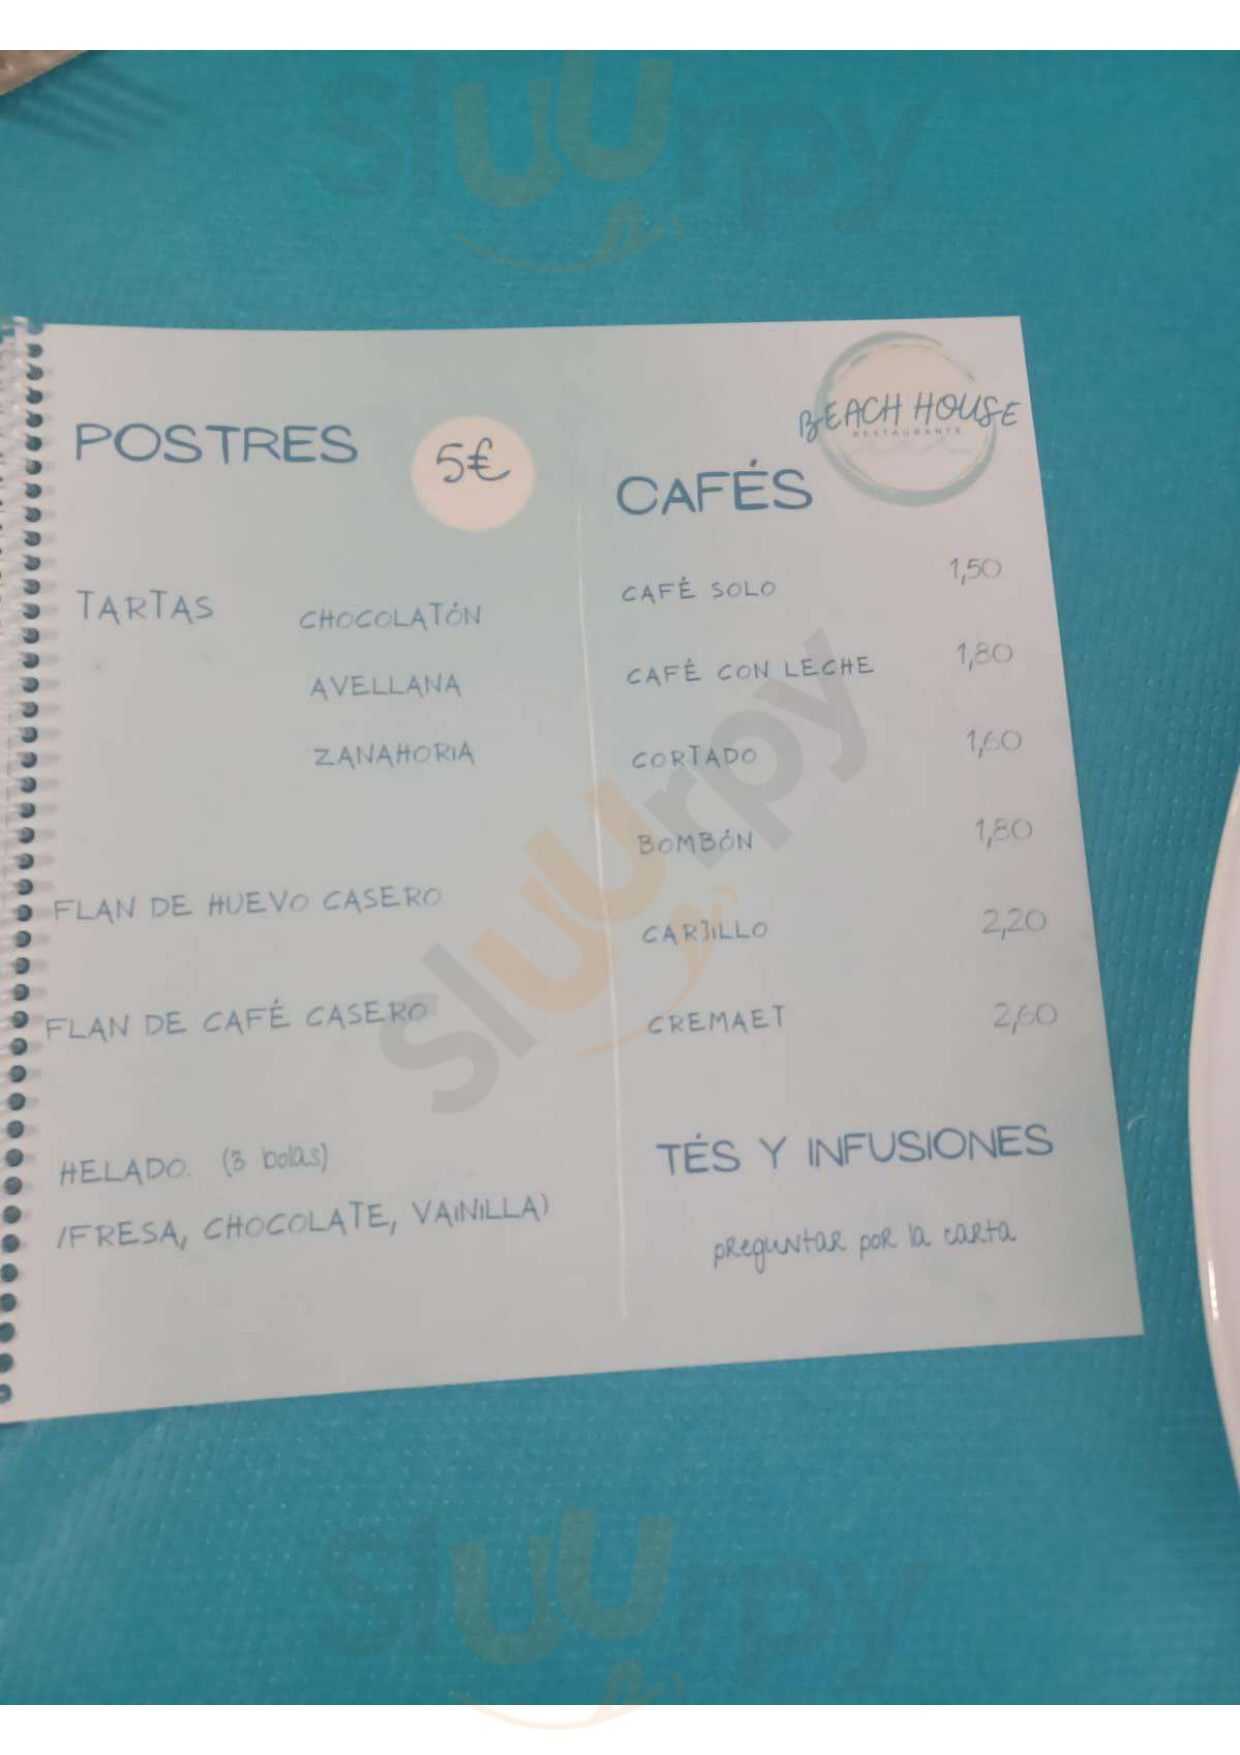 BEACH HOUSE
RESTAURANTE
POSTRES
5€
TARTAS
CHOCOLATÓN
AVELLANA
ZANAHORIA
FLAN DE HUEVO CASERO
FLAN DE CAFÉ CASERO
HELADO. (3 bolas)
(FRESA, CHOCOLATE, VAINILLA)
CAFÉS
CAFÉ SOLO 1,50
CAFÉ CON LECHE 1,80
CORTADO 1,60
BOMBÓN 1,80
CARJILLO 2,20
CREMAET 2,60
TÉS Y INFUSIONES
preguntar por la carta
sluurpy
sluurpy
sluurpy